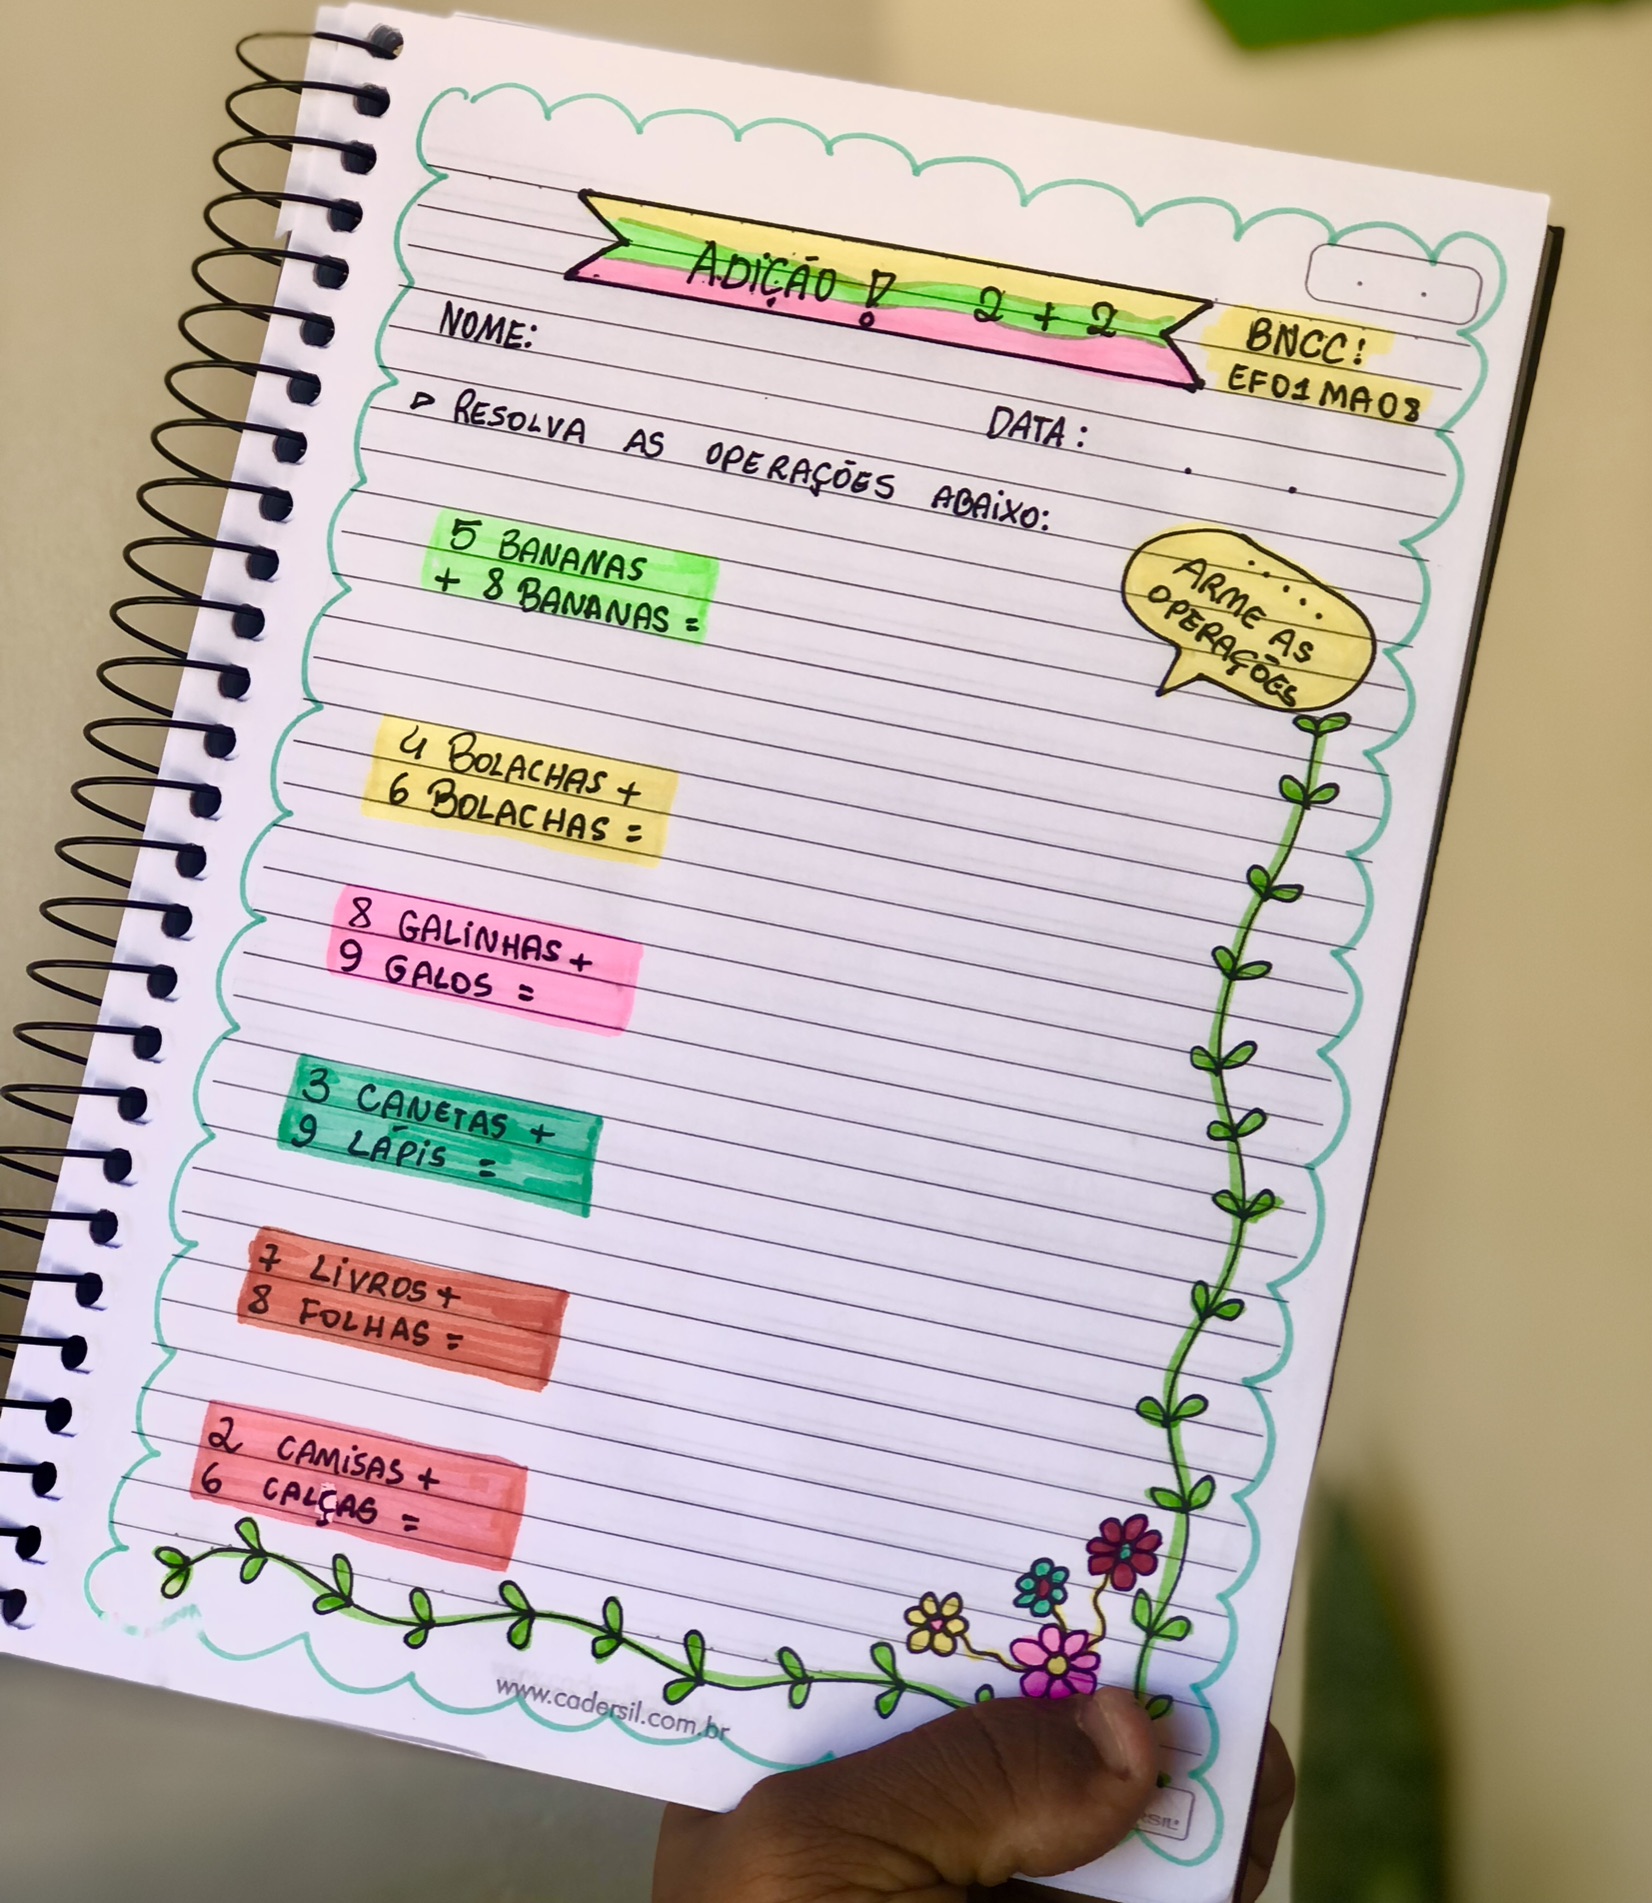 ADIÇÃO! 2 + 2
BNCC:
EF01MA08
NOME:
DATA: . .
▷ RESOLVA AS OPERAÇÕES ABAIXO:
ARME AS
OPERAÇÕES
5 BANANAS
+ 8 BANANAS =
4 BOLACHAS +
6 BOLACHAS =
8 GALINHAS +
9 GALOS =
3 CANETAS +
9 LÁPIS =
7 LIVROS +
8 FOLHAS =
2 CAMISAS +
6 CALÇAS =
www.cadersil.com.br